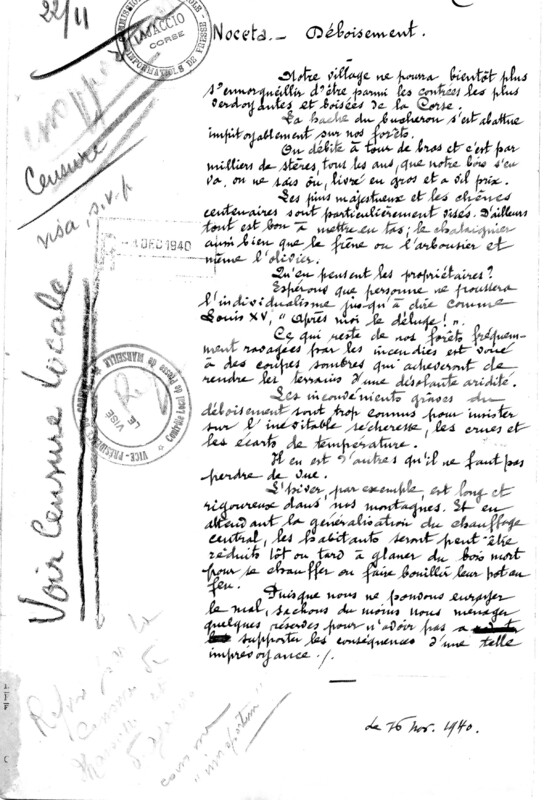 22/11
COMMISSION
AJACCIO
CORSE
INFORMATIONS DE PRESSE
Noceta._ Déboisement.
Notre village ne pourra bientôt plus
s'enorgueillir d'être parmi les contrées les plus
verdoyantes et boisées de la Corse.
La hache du bucheron s'est abattue
impitoyablement sur nos forêts.
On débite à tour de bras et c'est par
milliers de stères, tous les ans, que notre bois s'en
va, on ne sais où, livré en gros et a vil prix.
Les pins majestueux et les chênes
centenaires sont particulièrement visés. D'ailleurs
tout est bon à mettre en tas; le chataignier
aussi bien que le frêne ou l'arbousier et
même l'olivier.
Qu'en pensent les propriétaires?
Espérons que personne ne poussera
l'individualisme jusqu'à dire comme
Louis XV, "Après moi le déluge!".
Ce qui reste de nos forêts fréquem-
ment ravagées par les incendies est voué
à des coupes sombres qui achèveront de
rendre les terrains d'une désolante aridité.
Les inconvénients graves du
déboisement sont trop connus pour insister
sur l'inévitable sécheresse, les crues et
les écarts de température.
Il en est d'autres qu'il ne faut pas
perdre de vue.
L'hiver, par exemple, est long et
rigoureux dans nos montagnes. Et en
attendant la généralisation du chauffage
central, les habitants seront peut-être
réduits tôt ou tard à glaner du bois mort
pour se chauffer ou faire bouillir leur pot au
feu.
Puisque nous ne pouvons enrayer
le mal, sachons du moins nous ménager
quelques réserves pour n'avoir pas a
supporter les conséquences d'une telle
imprévoyance./.
Le 16 Nov. 1940.
Censure
visa, s.v.p
4 DEC 1940
Voir Censure Locale
VICE-PRÉSIDENCE
Contrôle Local de Presse de MARSEILLE
VISE
LE
comme
"inopportun"